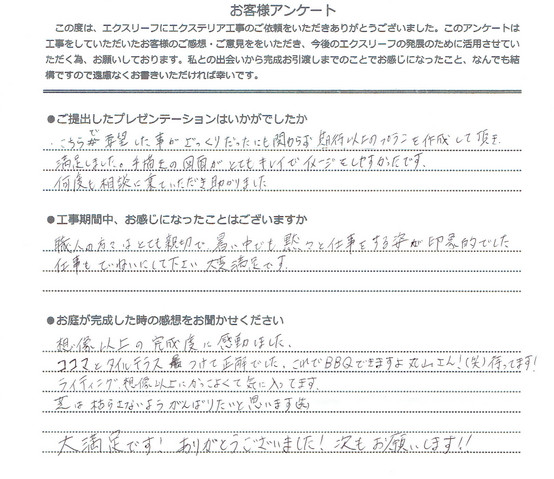 お客様アンケート
この度は、エクスリーフにエクステリア工事のご依頼をいただきありがとうございました。このアンケートは
工事をしていただいたお客様のご感想・ご意見ををいただき、今後のエクスリーフの発展のために活用させてい
ただく為、お願いしております。私との出会いから完成お引渡しまでのことでお感じになったこと、なんでも結
構ですので遠慮なくお書きいただければ幸いです。
●ご提出したプレゼンテーションはいかがでしたか
こちらで要望した事がざっくりだったにも関わらず期待以上のプランを作成して頂き
満足しました。手描きの図面がとてもキレイでイメージをしやすかったです。
何度も相談に乗っていただき助かりました
●工事期間中、お感じになったことはございますか
職人の方々はとても親切で暑い中でも黙々と仕事をする姿が印象的でした
仕事もていねいにして下さい大満足です。
●お庭が完成した時の感想をお聞かせください
想像以上の完成度に感動しました。
ココマとタイルテラスつけて正解でした。これでBBQできますよ丸山さん!(笑)待ってます!
ライティング想像以上にかっこよくて気に入ってます。
芝は枯らさないようがんばりたいと思います
大満足です!ありがとうございました!次もお願いします!!